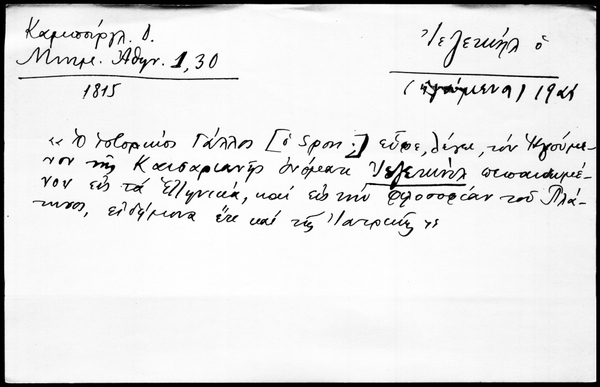 Καμπούργλ. Δ.
Μνημ. Ἀθην. 1, 30
1815
Ἰεζεκιὴλ ὁ
(ἡγούμενος)
« Ὁ ἱστορικὸς Γάλλος [ὁ Spon;] εὗρε, λέγει, τὸν Ἡγούμε-
νον τῆς Καισαριανῆς ὀνόματι Ἰεζεκιὴλ πεπαιδευμέ-
νον εἰς τὰ Ἑλληνικά, καὶ εἰς τὴν φιλοσοφίαν τοῦ Πλά-
τωνος, εἰδήμονα ἔτι καὶ τῆς Ἰατρικῆς »